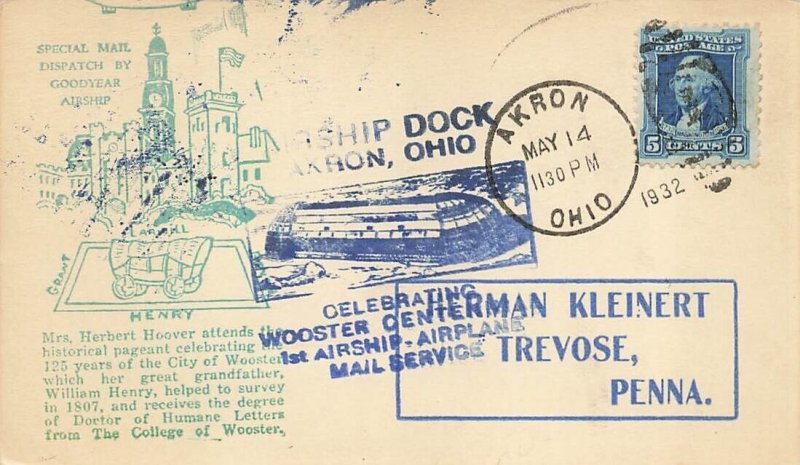 SPECIAL MAIL
DISPATCH BY
GOODYEAR
AIRSHIP
LARWILL
GRANT
HENRY
Mrs. Herbert Hoover attends the
historical pageant celebrating the
125 years of the City of Wooster
which her great grandfather,
William Henry, helped to survey
in 1807, and receives the degree
of Doctor of Humane Letters
from The College of Wooster.
AIRSHIP DOCK
AKRON, OHIO
CELEBRATING
WOOSTER CENTER
1st AIRSHIP-AIRPLANE
MAIL SERVICE
AKRON
MAY 14
1130 PM
1932
OHIO
UNITED STATES
POSTAGE
5 CENTS 5
HERMAN KLEINERT
TREVOSE,
PENNA.